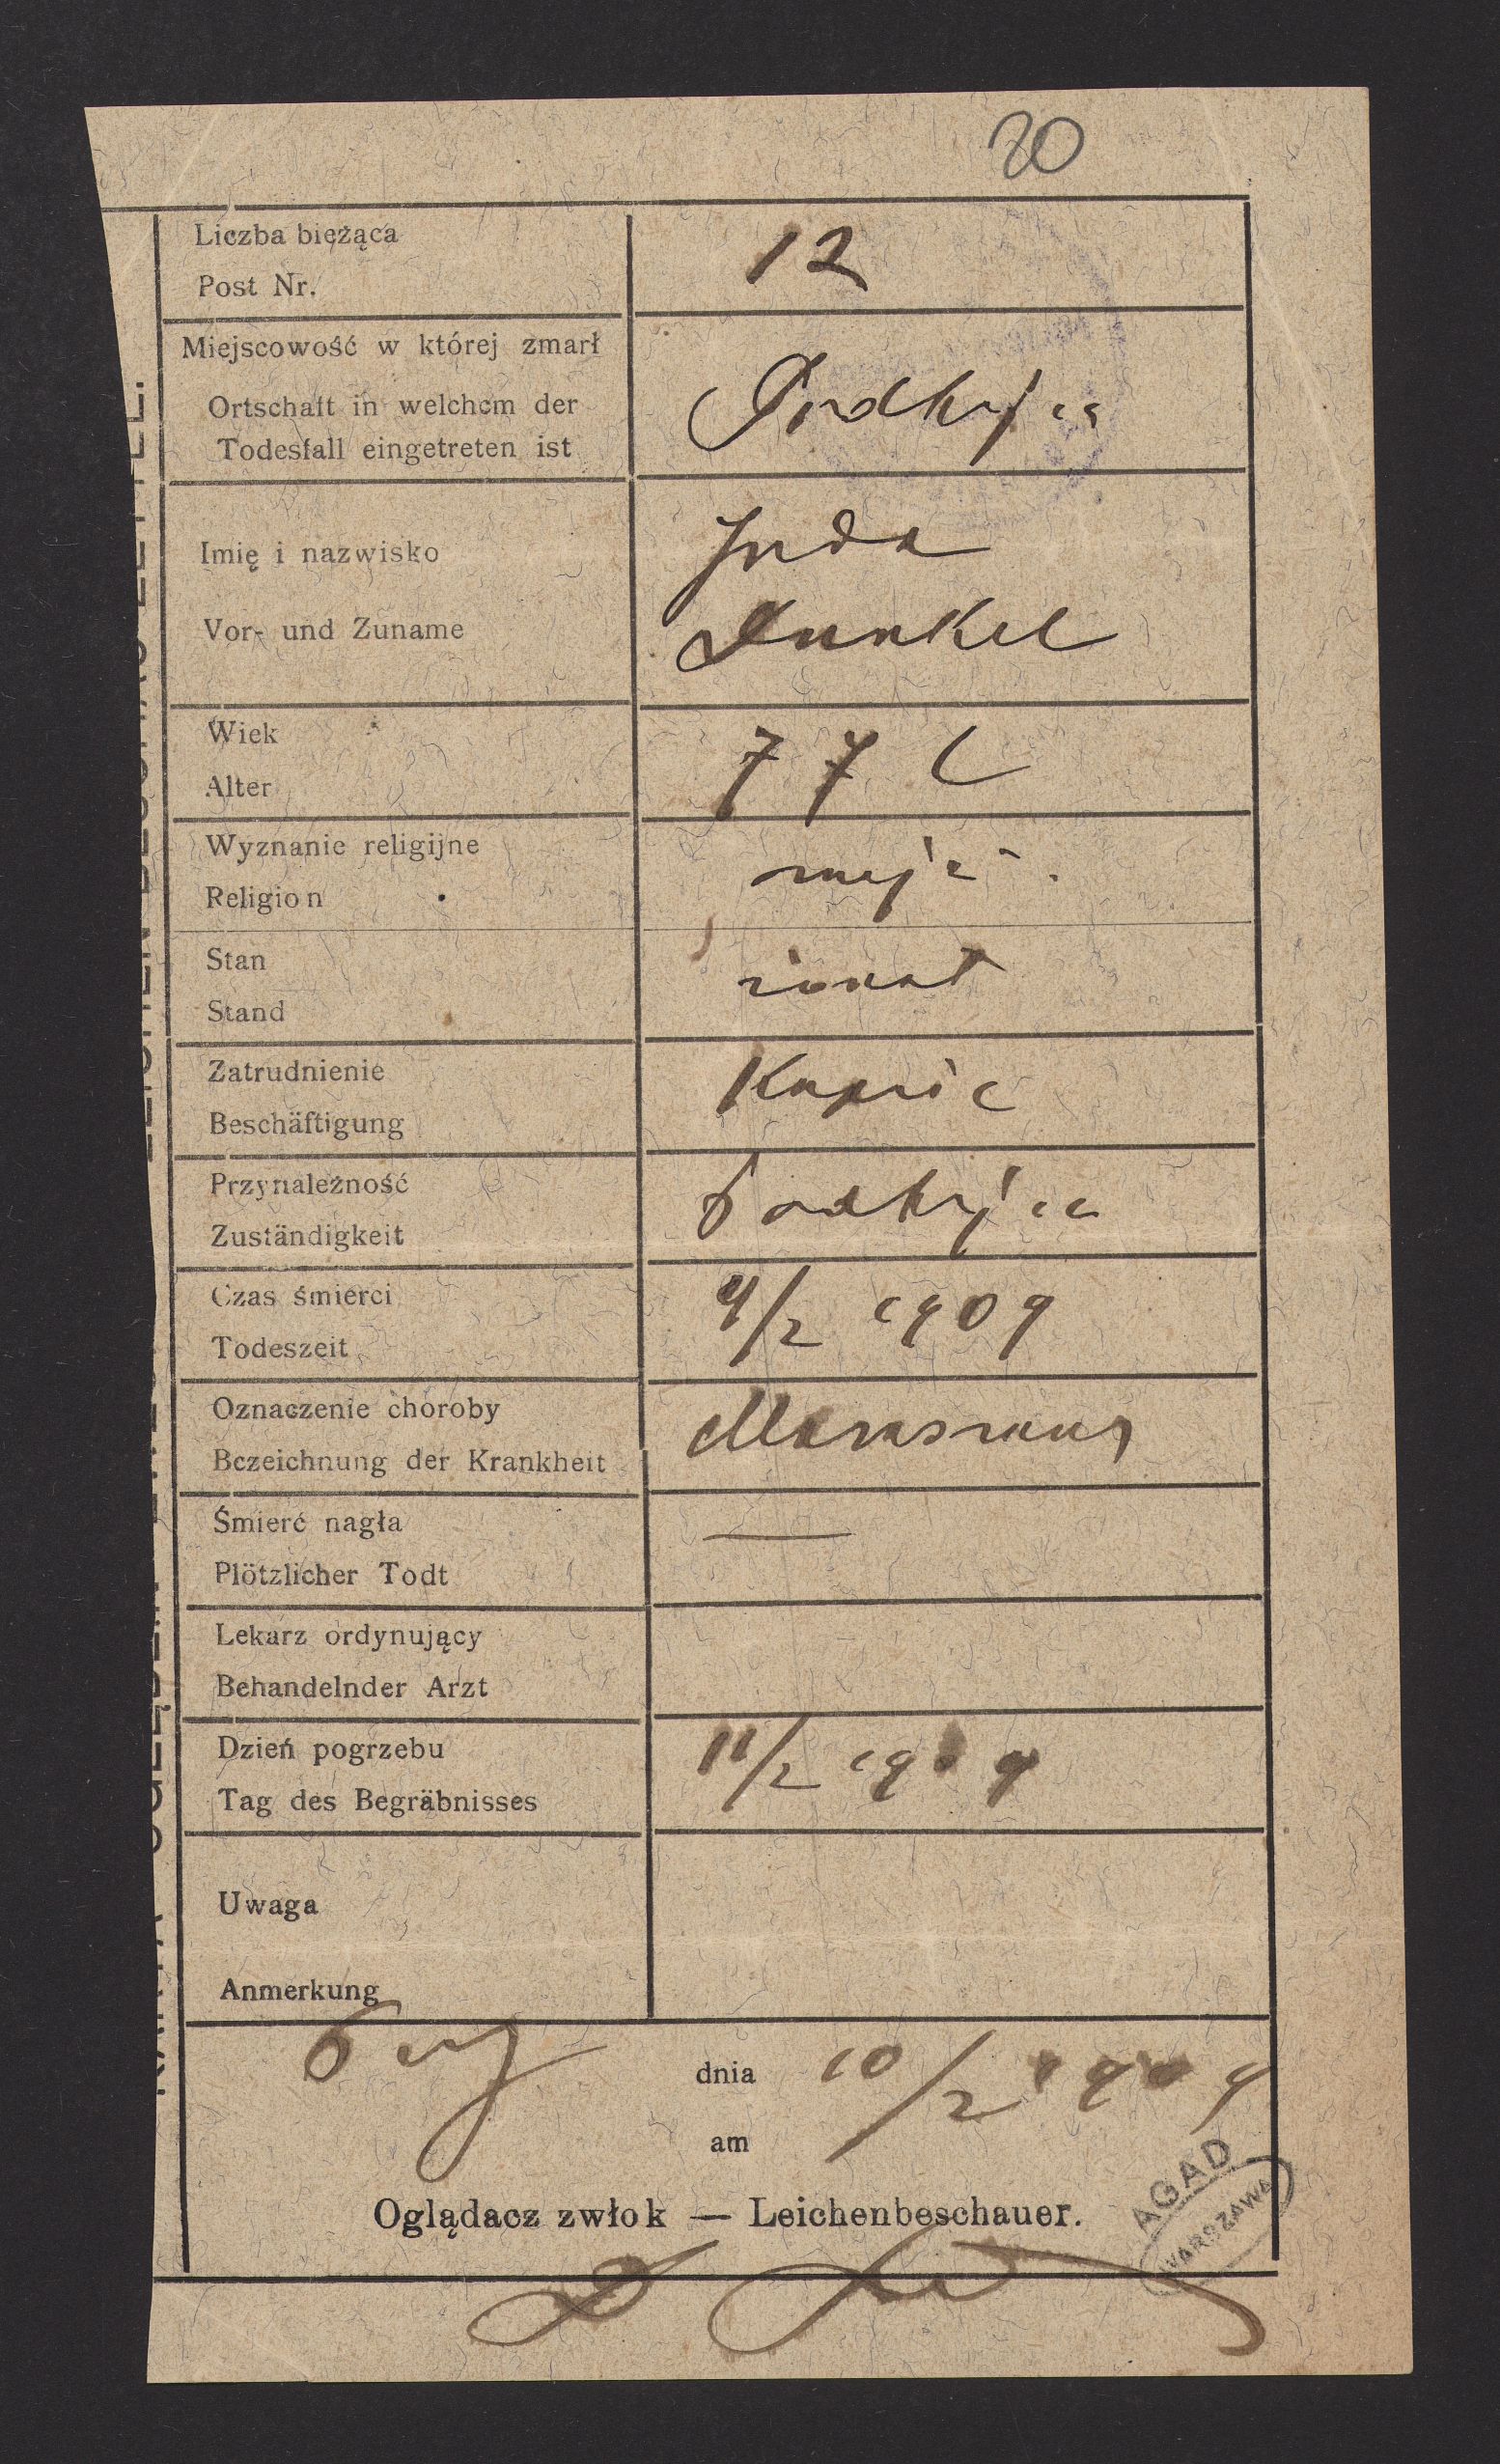 20
Liczba bieżąca
Post Nr.
12
Miejscowość w której zmarł
Ortschaft in welchem der
Todesfall eingetreten ist
Imię i nazwisko
Vor- und Zuname
Juda
Dunkel
Wiek
Alter
77 L
Wyznanie religijne
Religion
mojż.
Stan
Stand
żonat
Zatrudnienie
Beschäftigung
Kupiec
Przynależność
Zuständigkeit
Czas śmierci
Todeszeit
9/2 1909
Oznaczenie choroby
Bezeichnung der Krankheit
Marasmus
Śmierć nagła
Plötzlicher Todt
—
Lekarz ordynujący
Behandelnder Arzt
Dzień pogrzebu
Tag des Begräbnisses
11/2 1909
Uwaga
Anmerkung
dnia
am
10/2 1909
Oglądacz zwłok — Leichenbeschauer.
AGAD
WARSZAWA